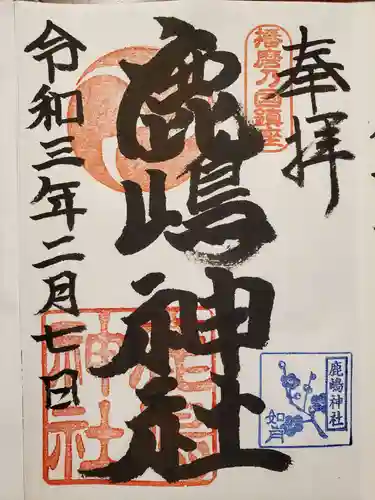 奉拝
播磨乃国鎮座
鹿嶋神社
令和三年二月七日
鹿嶋神社
鹿嶋神社
如月